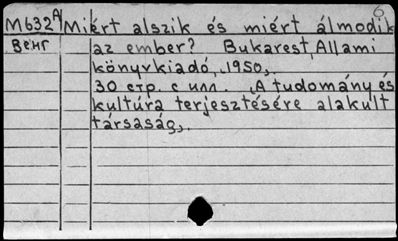 6
M632A Miért alszik és miért álmodik
Венг az ember? Bukarest, Állami
könyvkiadó, 1950,.
30 стр. с илл. (A tudomány és
kultúra terjesztésére alakult
társaság).